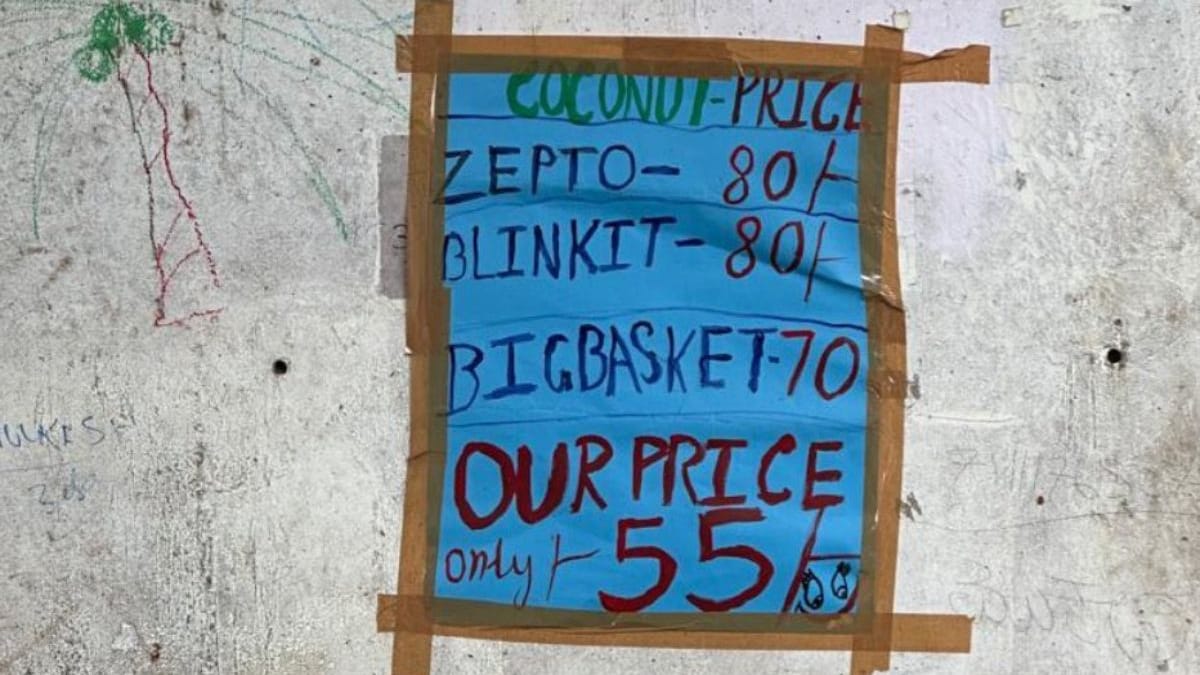 COCONUT-PRICE
ZEPTO- 80/-
BLINKIT- 80/-
BIGBASKET-70
OUR PRICE
only /- 55/-